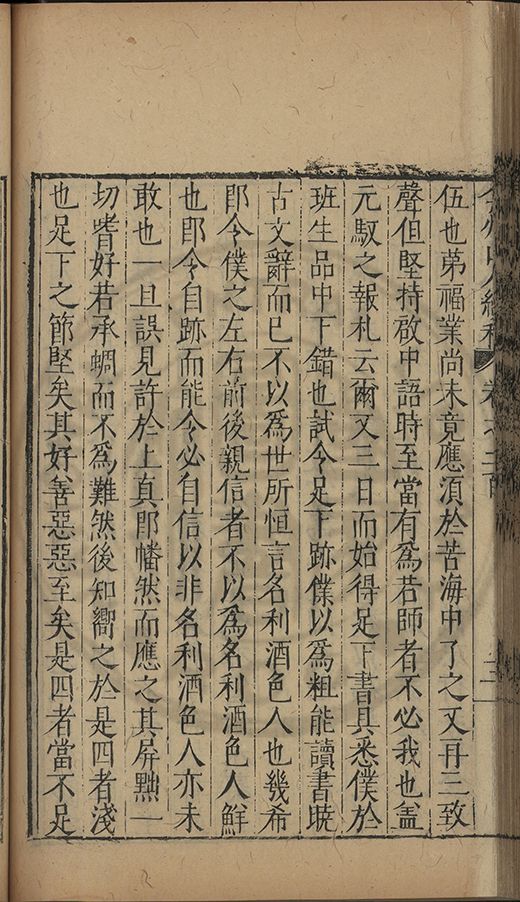 伍也苐福業尚未竟應須於苦海中了之又再三致
聲但堅持啟中語時至當有爲若師者不必我也盖
元馭之報札云爾又三日而始得足下書具悉僕於
班生品中下錯也試令足下跡僕以爲粗能讀書晓
古文辭而已不以爲世所恒言名利酒色人也幾希
即令僕之左右前後親信者不以爲名利酒色人鮮
也即令自跡而能令必自信以非名利酒色人亦未
敢也一旦誤見許於上真即幡然而應之其屏黜一
切嗜好若承蜩而不爲難然後知嚮之於是四者淺
也足下之節堅矣其好善惡惡至矣是四者當不足